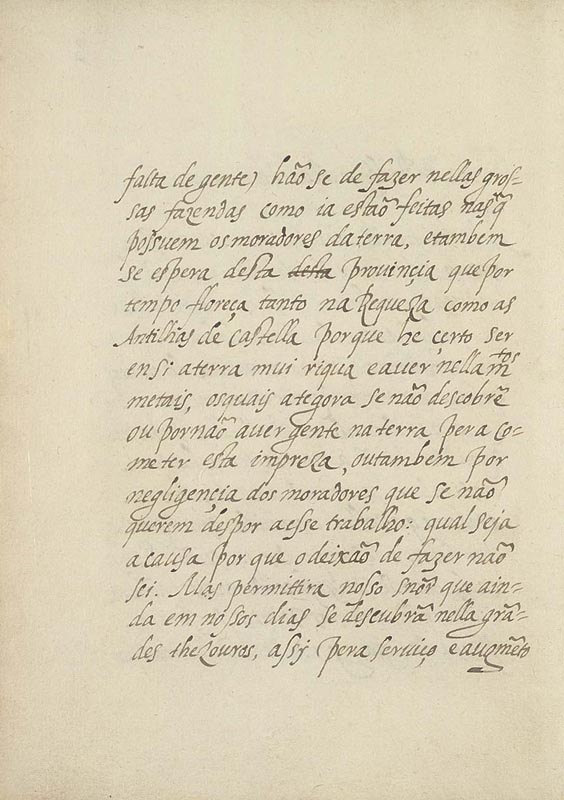 falta de gente) hão se de fazer nellas gros=
sas fazendas como ia estão feitas nas q̃
possuem os moradores da terra, e tambem
se espera desta desta provinçia que por
tempo floreça tanto na Requeza como as
Antilhas de castella porque he certo ser
en si a terra mui riqua e aver nella m̃tos
metais, os quais ategora se não descobrẽ
ou por não aver gente na terra pera co=
meter esta impreza, ou tambem por
negligençia dos moradores que se não
querem despor a esse trabalho: qual seja
a causa por que o deixão de fazer não
sei. Mas permittira nosso snõr que ain=
da em nossos dias se descubrã nella grã=
des thezouros, assy pera serviço e augmẽto